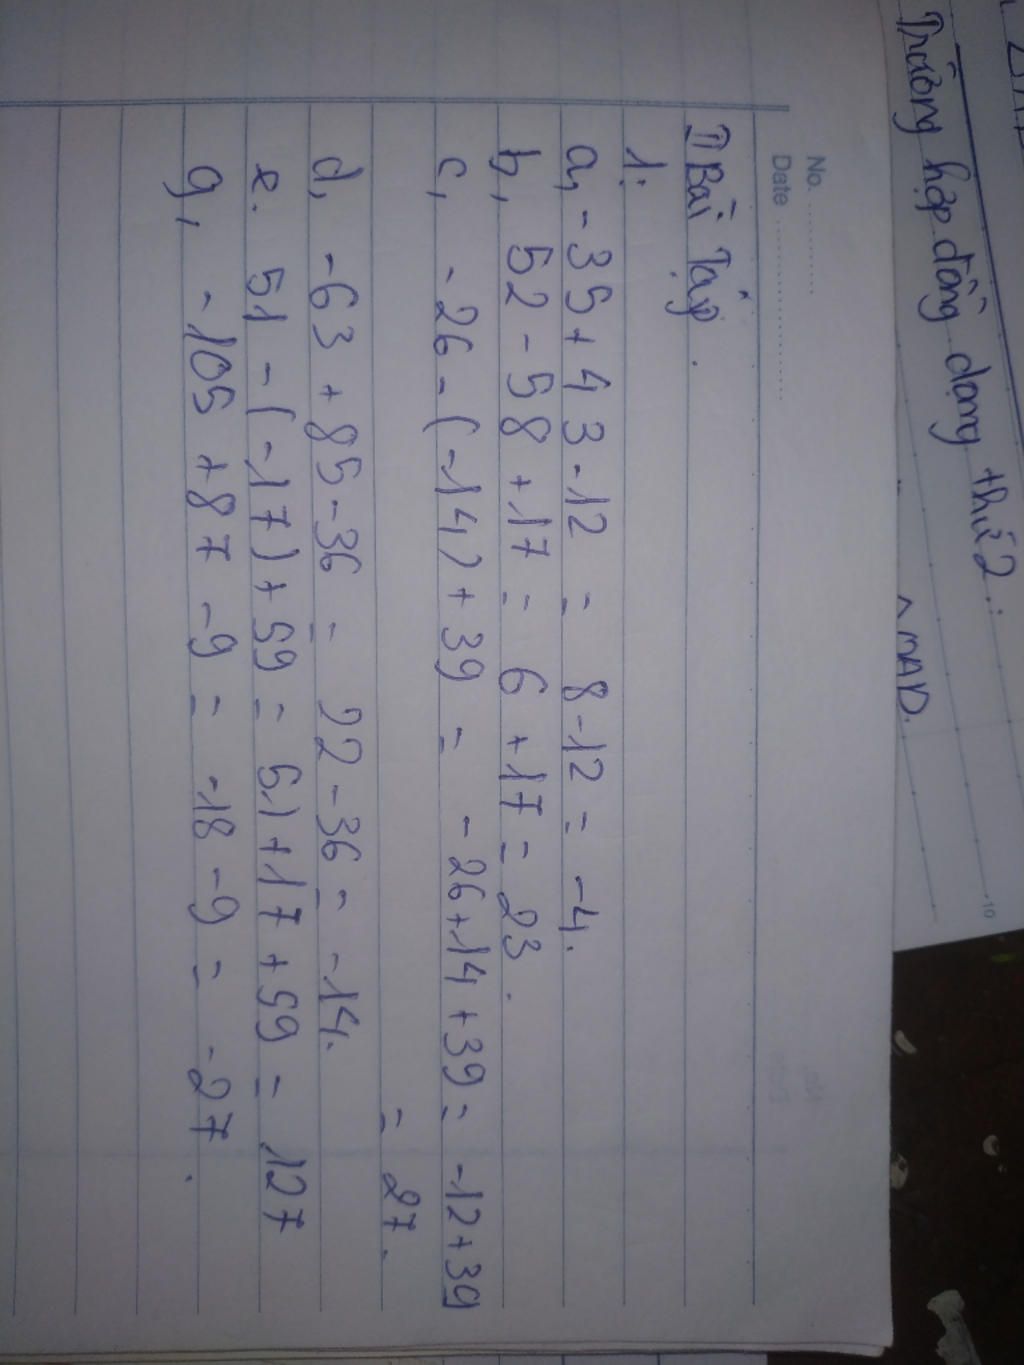 Trường hợp đồng dạng thứ 2:
^ MAD.
10
No. ............
Date ........................
II Bài Tập.
1:
a, -35 + 43 - 12 = 8 - 12 = -4.
b, 52 - 58 + 17 = 6 + 17 = 23.
c, -26 - (-14) + 39 = -26 + 14 + 39 = -12 + 39
= 27.
d, -63 + 85 - 36 = 22 - 36 = -14.
e. 51 - (-17) + 59 = 51 + 17 + 59 = 127
g, -105 + 87 - 9 = -18 - 9 = -27.